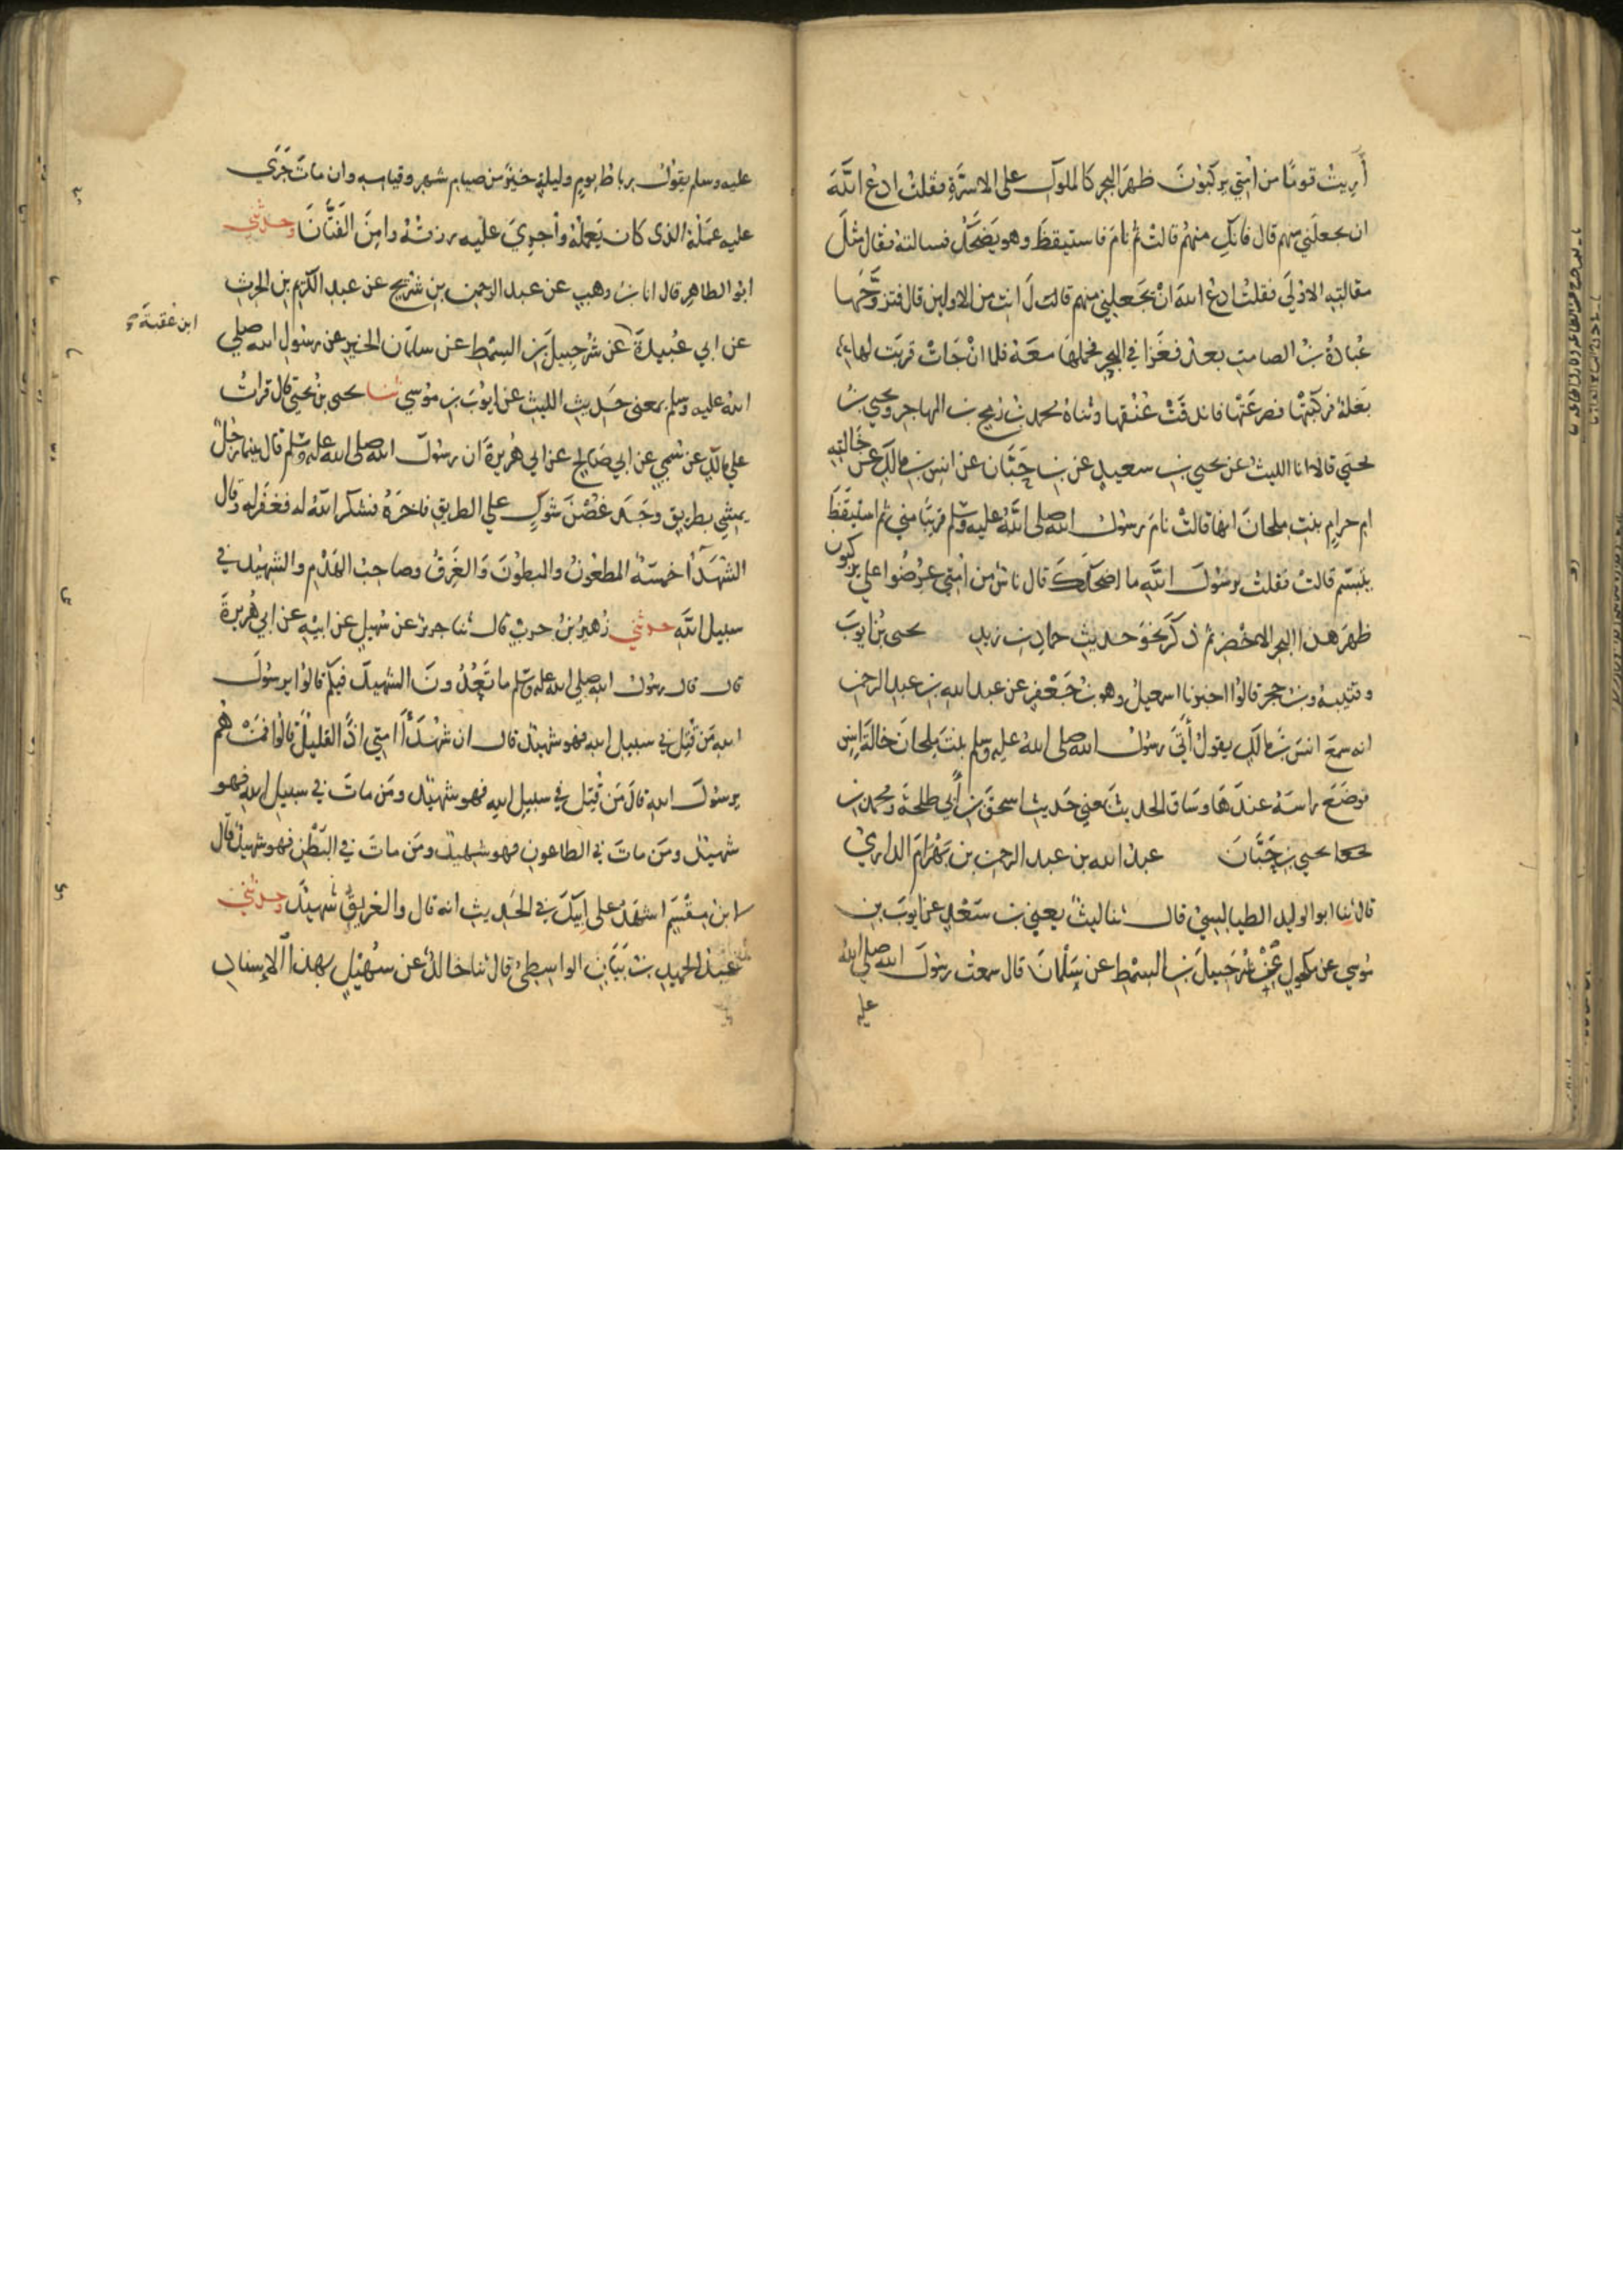 أُرِيتُ قومًا من امتي يركبونَ ظهرَ البحرِ كالملوكِ على الاسرَّةِ فقلتُ ادعُ اللهَ
ان يجعلَني منهم قال فانكِ منهم قالتْ ثم نامَ فاستيقظَ وهو يضحكُ فسالتهُ فقال مثلَ
مقالتِهِ الاولَى فقلتُ ادعُ اللهَ انْ يجعلَني منهم قال انتِ من الاولين قال فتزوَّجَها
عُبادةُ بنُ الصامتِ بعدُ فغزا في البحرِ فحملها معهُ فلما انْ جاتْ قربت لها
بغلةٌ فركبتْها فصرعَتْها فاندقَّتْ عُنُقُها وثناه محمد بنُ رُمحِ بن المهاجرِ ويحيى بنُ
يحيَى قالا انا الليثُ عن يحيى بنِ سعيدٍ عن بنِ حَبَّان عن انسِ بنِ مالكٍ عن خالتِهِ
امِ حرامٍ بنتِ ملحانَ انها قالتْ نامَ رسولُ اللهِ صلى اللهُ عليه وسلم قريبًا مني ثم استيقظَ
يتبسَّم قالتْ فقلتُ يرسولَ اللهِ ما اضحككَ قال ناسٌ من امتي عُرِضُوا علي يركبون
ظهرَ هذا البحرِ الاخضرِ ثم ذكَرَ نحوَ حديثِ حمادِ بن زيدٍ يحيى بنُ ايوبَ
وقتيبةُ وبن حجرٍ قالُوا اخبرنا اسمعيلُ وهو بنُ جَعْفرٍ عن عبدِ اللهِ بنِ عبدِ الرحمنِ
انه سمعَ انسَ بنَ مالكٍ يقولُ أَتَى رسولُ اللهِ صلى اللهُ عليه وسلم بنتَ ملحانَ خالةَ انسٍ
فوضعَ راسَهُ عندَها وساق الحديثَ بمعنى حديثِ اسحقَ بنِ أبي طلحةَ ومحمدِ بنِ
يحيى بنِ حَبَّانَ عبدُ الله بن عبد الرحمن بن بَهْرامَ الداريُّ
قال ثنا ابو الوليد الطيالسيُّ قال ثنا ليثٌ يعني بن سَعْدٍ عن ايوبَ بنِ
مُوسى عن مكحولٍ عن شُرَحْبِيلَ بنِ السِّمطِ عن سَلْمانَ قال سمعتُ رسولَ اللهِ صلى اللهُ
عليه
عليه وسلم يقولُ رباطُ يومٍ وليلةٍ خيرٌ من صيامِ شهرٍ وقيامِهِ وان ماتَ جَرَى
عليه عَمَلُهُ الذى كان يَعملُهُ وأُجرِيَ عليه رزقُهُ وامِنَ الفَتَّانَ وحدثني
ابو الطاهرِ قال انا بنُ وهبٍ عن عبدِ الرحمنِ بنِ شُرَيحٍ عن عبدِ الكريمِ بنِ الحرثِ
عن ابي عُبيدةَ عن شُرَحبيلَ بنِ السِّمطِ عن سلمانَ الخيرِ عن رسولِ الله صلى
ابن عقبة
اللهُ عليه وسلم بمعنى حديثِ الليثِ عن ايوبَ بنِ مُوسى ثنا يحيى بنُ يحيَى قال قراتُ
علي مالكٍ عن سُميٍ عن ابي صالحٍ عن ابي هُريرةَ ان رسولَ اللهِ صلى اللهُ عليه وسلم قال بينما رجلٌ
يمشي بطريقٍ وجَدَ غُصْنَ شوكٍ علي الطريقِ فاخرَهُ فشكرَ اللهُ له فغفرَ له وقال
الشُهَدَاُ خمسةٌ المطعُونُ والمبطُونُ والغَرِقُ وصاحبُ الهَدْمِ والشهيدُ في
سبيلِ اللهِ حدثني زُهيرُ بنُ حربٍ قال ثنا جريرٌ عن سُهيلٍ عن ابيهِ عن ابي هُريرةَ
قال قال رسولُ اللهِ صلى اللهُ عليه وسلم ما تَعُدُّونَ الشهيدَ فيكُم قالوا يرسولَ
اللهِ مَن قُتِلَ في سبيلِ اللهِ فهو شهيدٌ قال ان شُهَدَاَ امتي اذًا لقليلٌ قالُوا فمَنْ هُم
يرسولَ اللهِ قال مَن قُتِلَ في سبيلِ اللهِ فهو شهيدٌ ومَن ماتَ في سبيلِ اللهِ فهو
شهيدٌ ومَن ماتَ في الطاعونِ فهو شهيدٌ ومَن ماتَ في البَطْنِ فهو شهيدٌ قال
ابنُ مِقْسَمٍ اشهدُ على ابيكَ في الحديثِ انه قال والغريقُ شهيدٌ وحدثني
عبدُ الحميدِ بنُ بَيَانٍ الواسطيُّ قال ثنا خالدٌ عن سُهيلٍ بهذا الإسنادِ